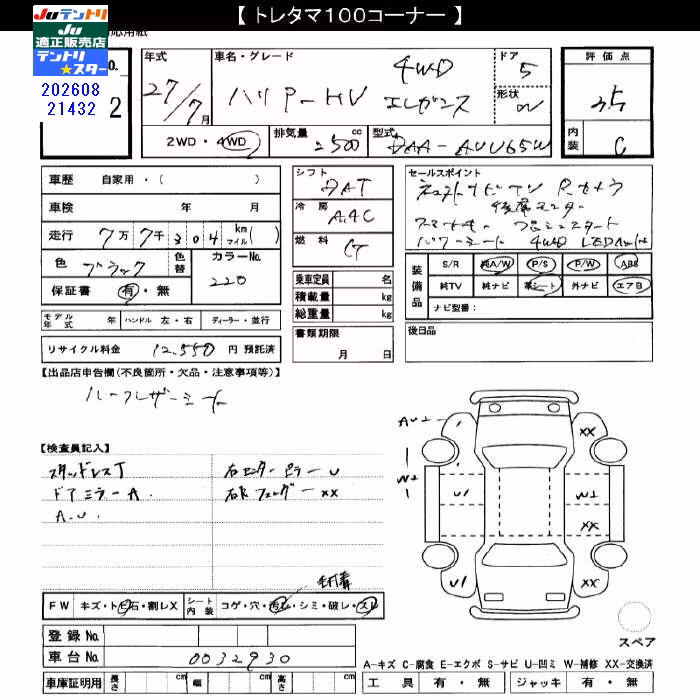 【 トレタマ100コーナー 】
JUテントリ
JU
適正販売店
テントリ
★スター
202608
21432
2
年式
27/7月
車名・グレード
ハリアーHV 4WD
エレガンス
ドア
5
形状
評価点
3.5
内装
C
2WD・4WD
排気量
2500 cc
型式
DAA-AVU65W
車歴 自家用・( )
車検 年 月
走行 7万7千304 km マイル( )
色 ブラック 色替 カラーNo. 220
保証書 有・無
シフト
DAT
冷房
AAC
燃料
乗車定員 名
積載量 kg
総重量 kg
書類期限
月 日
セールスポイント
後席モニター
スマートキー プッシュスタート
パワーシート 4WD
装備品
S/R 純A/W P/S P/W ABS
純TV 純ナビ 革シート 外ナビ エアB
ナビ型番:
後日品
モデル年式 年 ハンドル 左・右 ディーラー・並行
リサイクル料金 12,550 円 預託済
【出品店申告欄(不良箇所・欠品・注意事項等)】
ハーフレザーシート
【検査員記入】
スタッドレスT
ドアミラーA.
A.U.
右センターピラーU
右Rフェンダー XX
FW キズ・トビ石・割レX シート内装 コゲ・穴・汚レ・シミ・破レ・スレ
登録No.
車台No. 0032930
車庫証明用 長さ cm 幅 cm 高さ cm
AU1
W1
U1
U1
XX
W1
XX
XX
スペア
A-キズ C-腐食 E-エクボ S-サビ U-凹ミ W-補修 XX-交換済
工具 有・無 ジャッキ 有・無